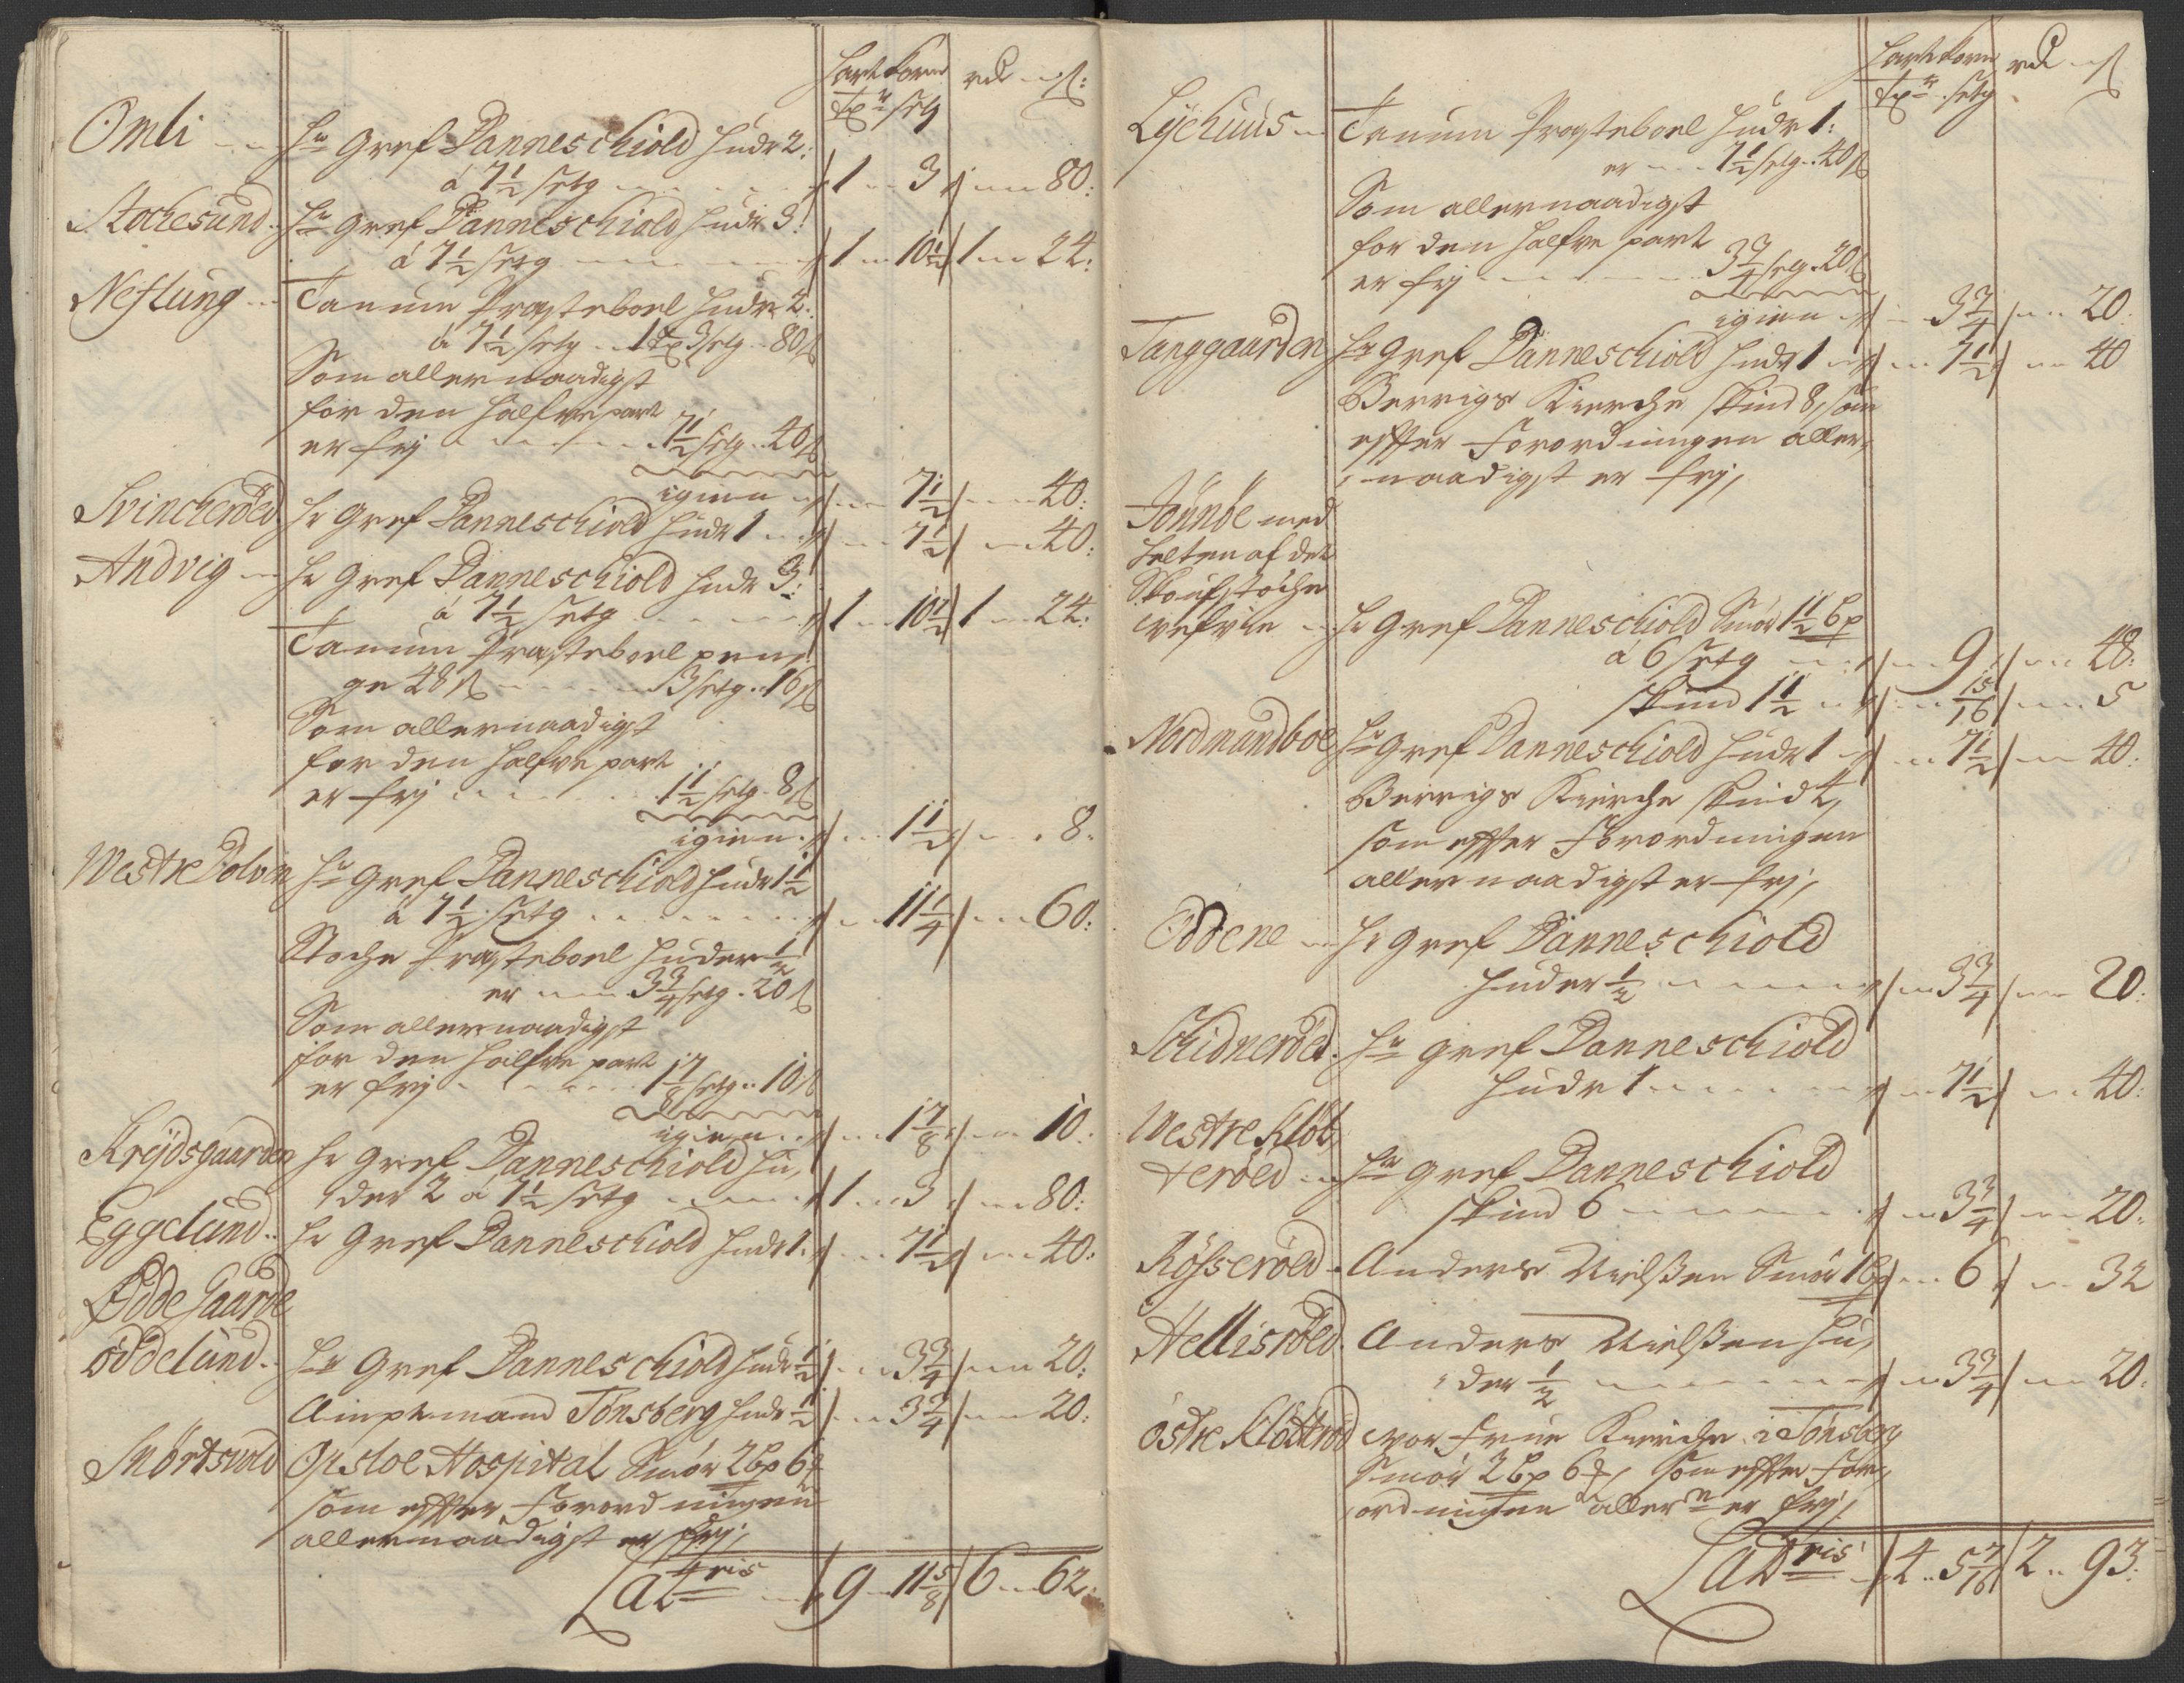 Hart Korn
Tr setg rdr ß:
Omli Hr Gref Danneschiold huder 2:
á 7½ setg 1 3 80:
Stochesund Hr Gref Danneschiold huder 3:
á 7½ setg 1 10½ 1 24:
Neflung Tanum Præsteboel huder 2:
á 7½ setg 1 3 setg 80 ß
Som allernaadigst
for den halfve part
er frj 7½ setg 40 ß
igien 7½ 40:
Svincheröed Hr Gref Danneschiold hude 1 7½ 40:
Andvig Hr Gref Danneschiold huder 3:
á 7½ setg 1 10½ 1 24:
Tanum Præsteboel pen,
ge 48 ß 3 setg 16 ß
Som allernaadigst
for den halfve part
er frj 1½ setg 8 ß
igien 1½ 8:
Westre Dolven Hr Gref Danneschiold huder 1½
á 7½ setg 11¼ 60:
Stoche Præsteboel huder ½
er 3¾ setg 20 ß
Som allernaadigst
for den halfve part
er frj 1⅞ setg 10 ß
igien 1⅞ 10:
Krydsgaarden Hr Gref Danneschiold hu,
der 2 á 7½ setg 1 3 80:
Eggelund Hr Gref Danneschiold hude 1 7½ 40:
Ödde Gaarde
öddelund Hr Gref Danneschiold hude ½ 3¾ 20:
Amptmand Tönsberg hude ½ 3¾ 20:
Smörtsvold Opsloe Hospital Smör 2 bp 6
som effter Forordningen
allernaadigst er frj,
Latris 9 11⅝ 6 62:
Hart Korn rdr ß
Tr setg
Lÿchuus Tanum Præsteboel hude 1:
er 7½ setg 40 ß
Som allernaadigst
for den halfve part
er frj 3¾ setg 20 ß
igien 3¾ 20:
Tanggaarden Hr Gref Danneschiold hude 1 7½ 40
Berrigs Kierche skind 8, som
effter Forordningen aller,
naadigst er frj,
med
helten af det
Hr Gref Danneschiold Smör 1½ bp
á 6 setg 9 48:
skind 1½ 15/16 5
Nordmandboe Hr Gref Danneschiold hude 1 7½ 40:
Berrigs Kierche skind 4,
som effter Forordningen
allernaadigst er frj,
Oddene Hr Gref Danneschiold
huder ½ 3¾ 20:
Schidneröed Hr Gref Danneschiold
hude 1 7½ 40:
Westre Klöt,
teröed Hr Gref Danneschiold
skind 6 3¾ 20:
Rösseröed Anders Nielsen Smör 1 bp 6 32
Hellisröed Anders Nielsen hu,
der ½ 3¾ 20:
östre Klötteröd vor Frue Kierche i Tönsberg
Smör 2 bp 6, som effter For,
ordningen aller er frj,
Latris 4 5 7/16 2 93: